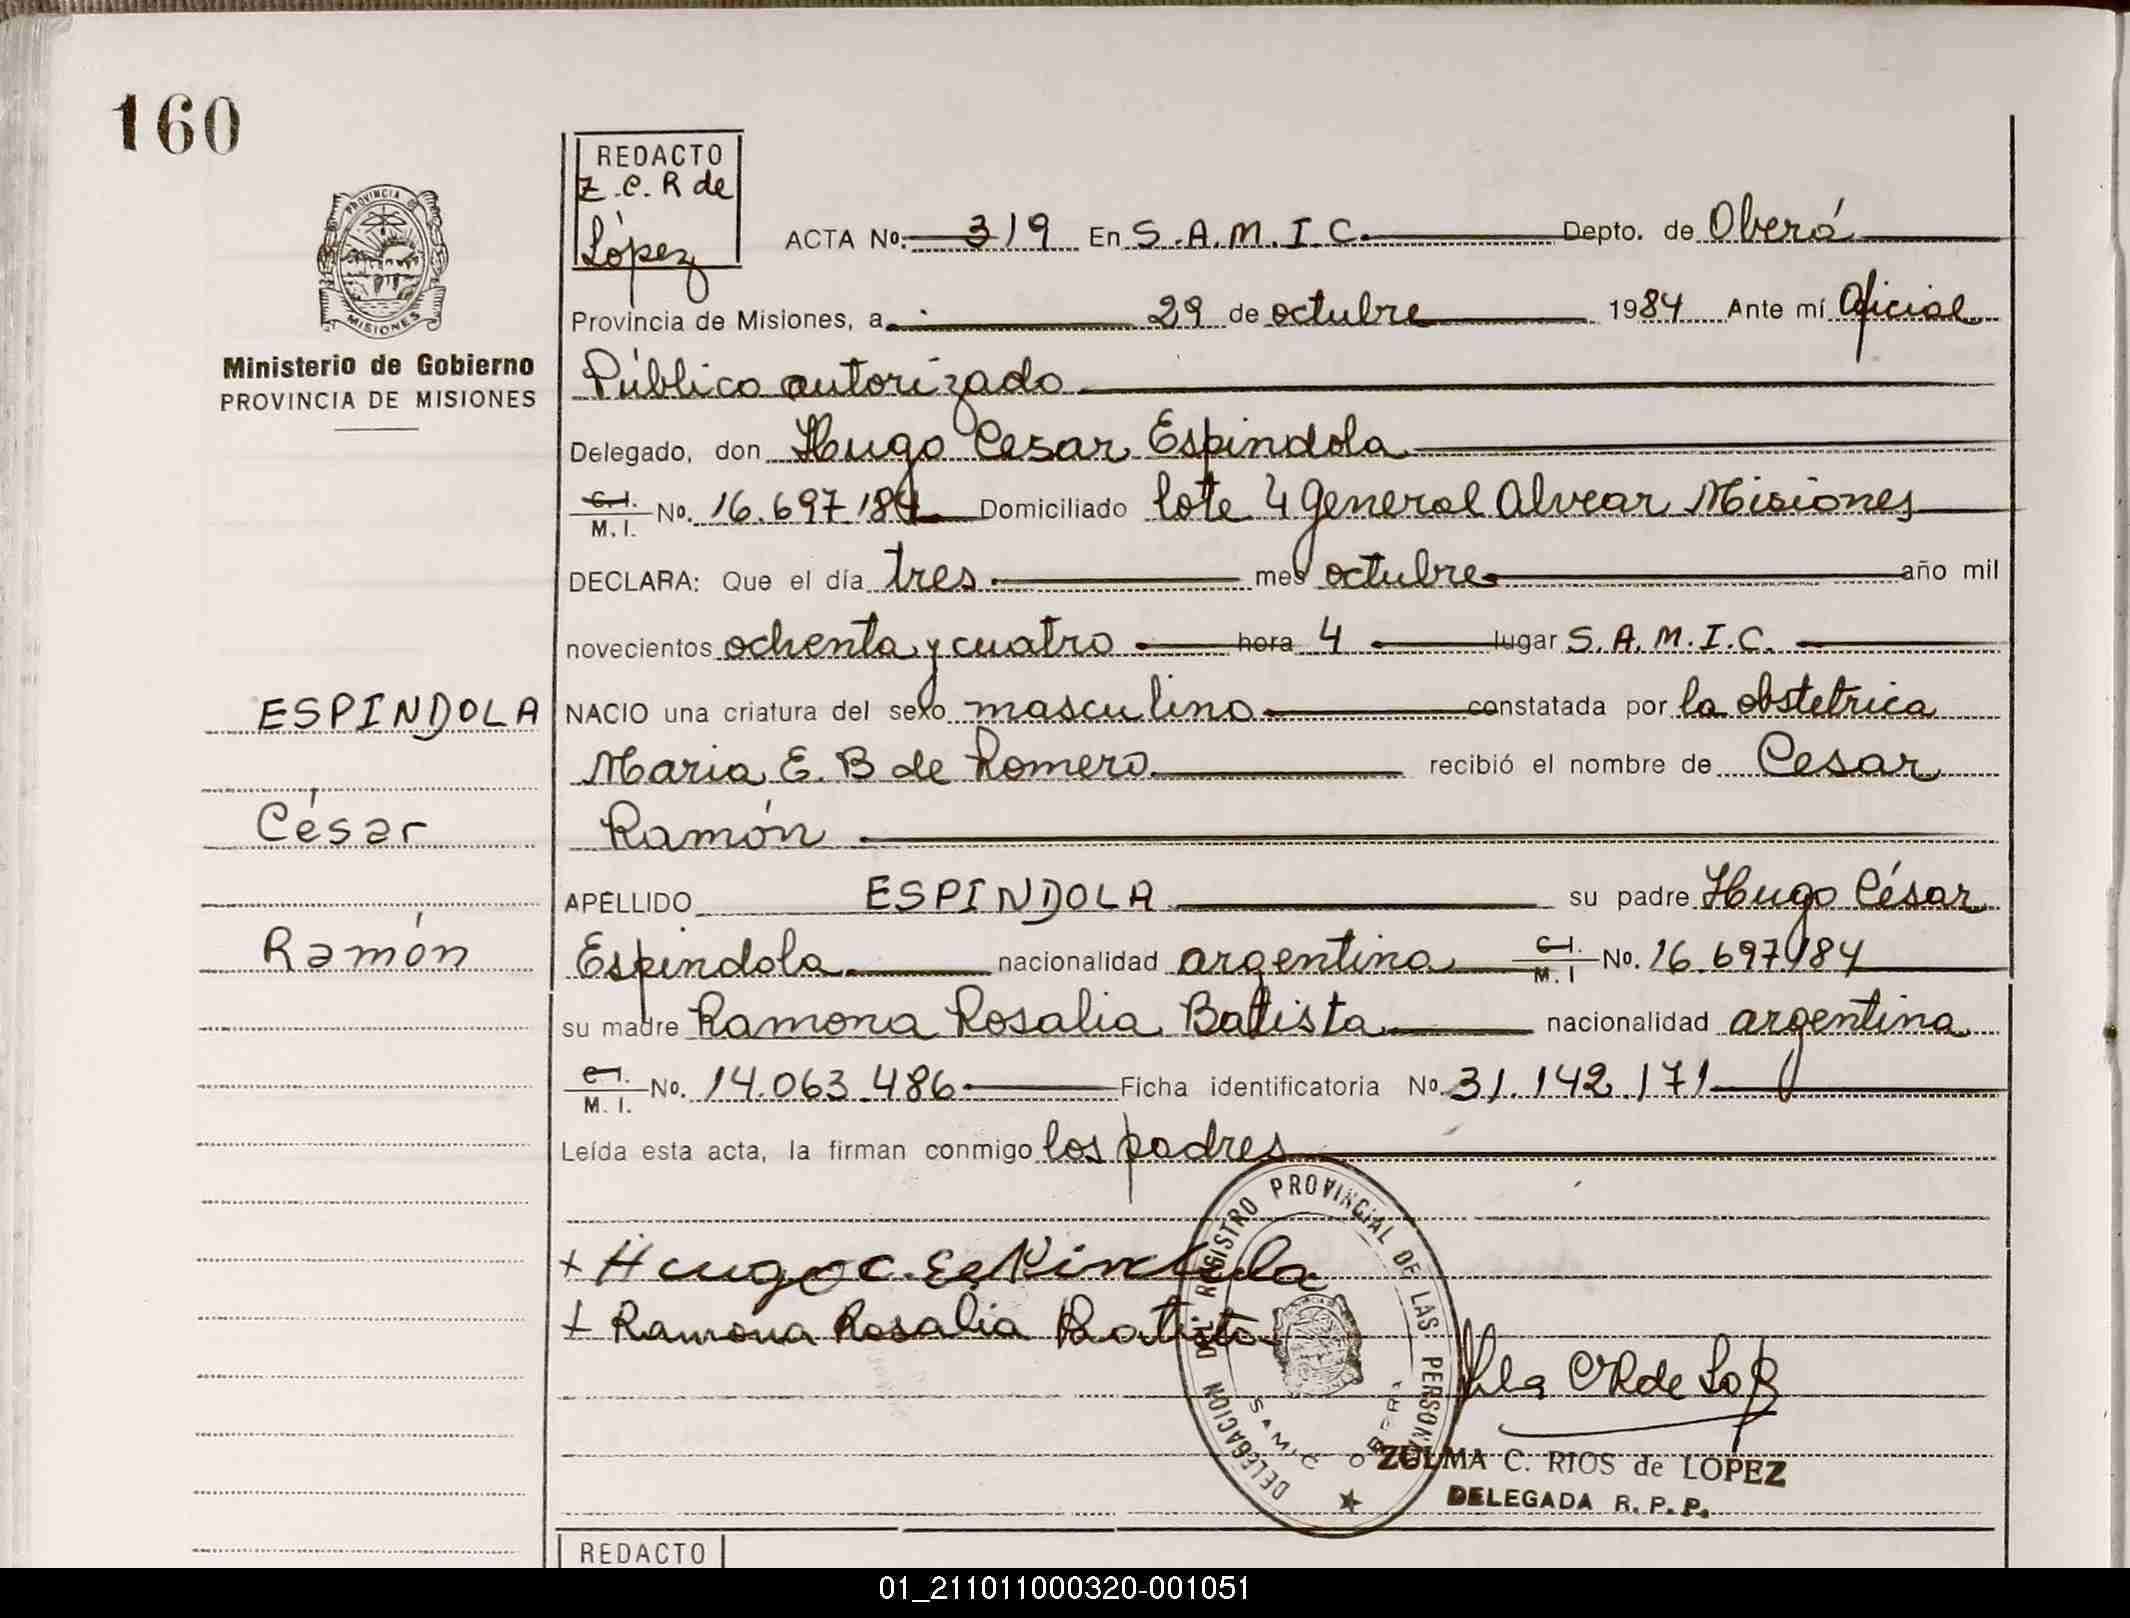 160
PROVINCIA DE
MISIONES
Ministerio de Gobierno
PROVINCIA DE MISIONES
REDACTO
Z.C.R de
López
ACTA No. 319 En S.A.M.I.C. Depto. de Oberá
Provincia de Misiones, a 29 de octubre 1984 Ante mí Oficial
Público autorizado
Delegado, don Hugo Cesar Espindola
C.I. M.I. No. 16.697.184 Domiciliado lote 4 General Alvear Misiones
DECLARA: Que el día tres mes octubre año mil
novecientos ochenta y cuatro hora 4 lugar S.A.M.I.C.
ESPINDOLA
NACIO una criatura del sexo masculino constatada por la obstetrica
Maria E. B de Romero recibió el nombre de Cesar
César
Ramón
APELLIDO ESPINDOLA su padre Hugo César
Ramón
Espindola nacionalidad argentina C.I. M.I No. 16.697.184
su madre Ramona Rosalia Batista nacionalidad argentina
C.I. M.I. No. 14.063.486 Ficha identificatoria No. 31.142.171
Leída esta acta, la firman conmigo los padres
+ Hugo C. Espindola
+ Ramona Rosalia Batista
DELEGACION DEL REGISTRO PROVINCIAL DE LAS PERSONAS
S.A.M.I.C. OBERA
ZULMA C. RIOS de LOPEZ
DELEGADA R.P.P.
REDACTO
01_211011000320-001051